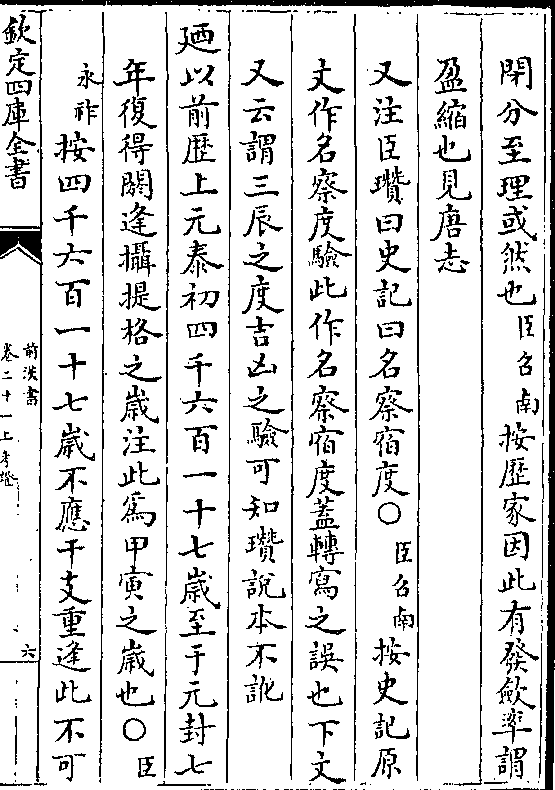 閉分至理或然也臣召南按歴家因此有發斂率謂
盈縮也見唐志
又注臣瓚曰史記曰名察宿度○臣召南按史記原
文作名察度驗此作名察宿度蓋轉寫之誤也下文
又云謂三辰之度吉凶之驗可知瓚說本不訛
廼以前歴上元泰初四千六百一十七歳至于元封七
年復得閼逢攝提格之歳注此爲甲寅之歳也○臣
永祚按四千六百一十七歳不應干支重逢此不可
欽定四庫全書
前漢書
卷二十一上考證
六